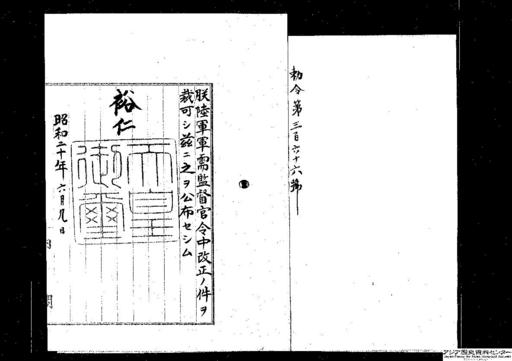 勅令第三百六十六號
朕陸軍軍需監督官令中改正ノ件ヲ
裁可シ茲ニ之ヲ公布セシム
裕仁
天皇
御璽
昭和二十年六月九日
内閣
アジア歴史資料センター